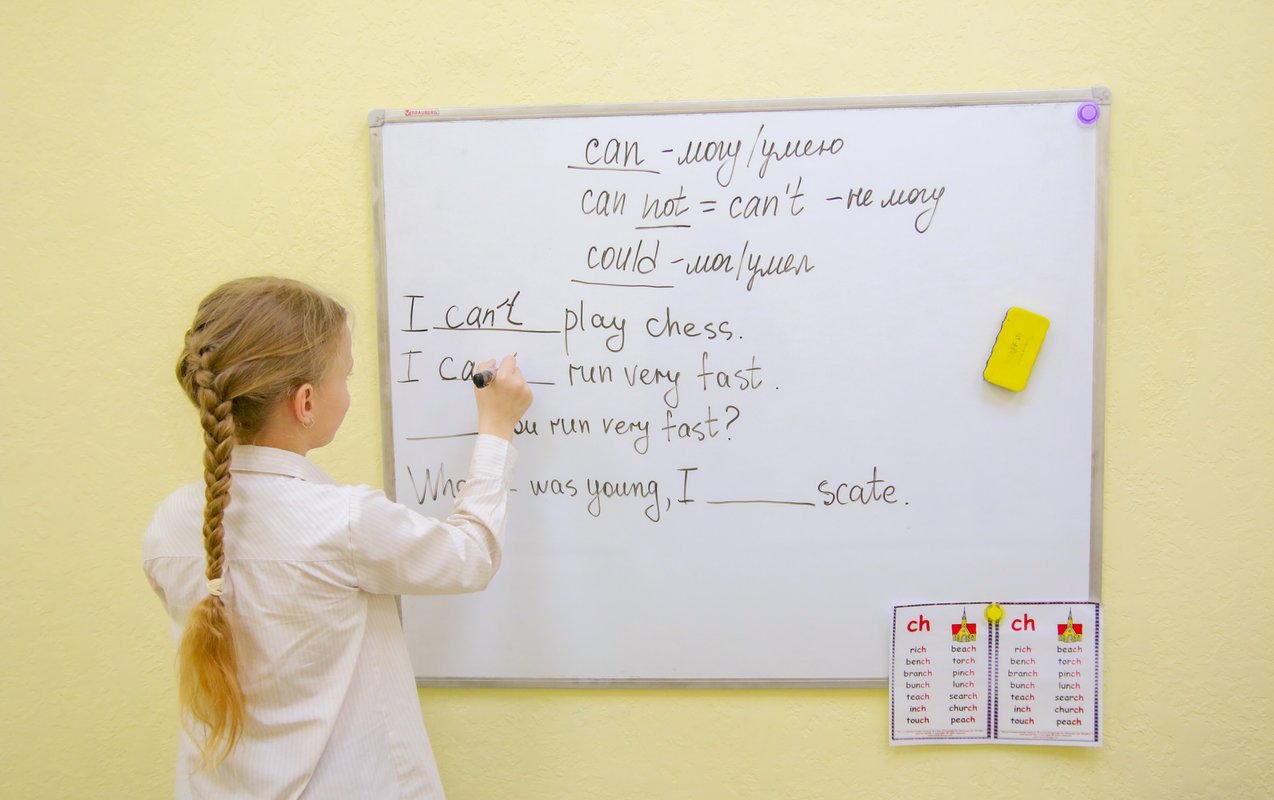 BRAUBERG
can - могу/умею
can not = can't - не могу
could - мог/умел
I can't play chess.
I ca run very fast.
run very fast?
was young, I ______ scate.
ch ch
rich beach rich beach
bench torch bench torch
branch pinch branch pinch
bunch lunch bunch lunch
teach search teach search
inch church inch church
touch peach touch peach